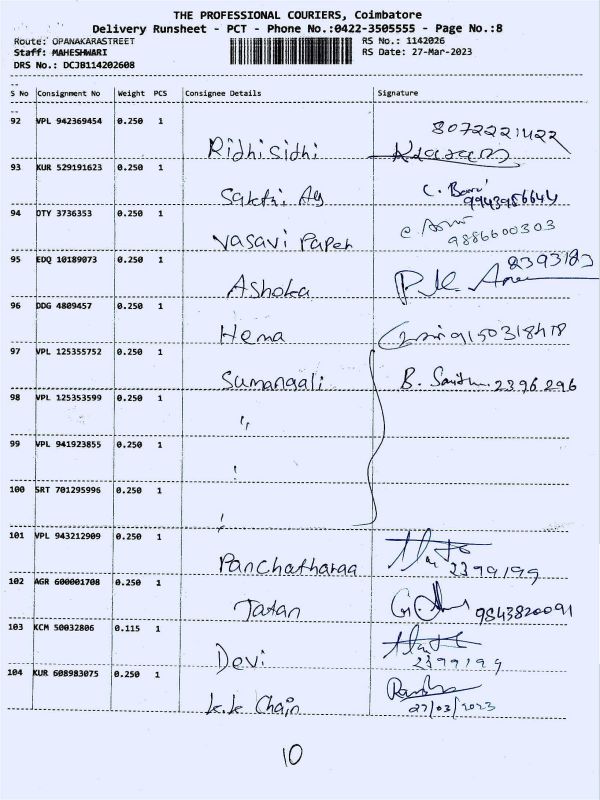 THE PROFESSIONAL COURIERS, Coimbatore
Delivery Runsheet - PCT - Phone No.:0422-3505555 - Page No.:8
Route: OPANAKARASTREET
RS No.: 1142026
Staff: MAHESHWARI
RS Date: 27-Mar-2023
DRS No.: DCJB114202608
S No Consignment No Weight PCS Consignee Details Signature
92 VPL 942369454 0.250 1
8072221422
Ridhisidhi
93 KUR 529191623 0.250 1
Sakthi Ag
C.
9943986644
94 OTY 3736353 0.250 1
Vasavi Paper
9886600303
95 EDQ 10189073 0.250 1
2393183
Ashoka
96 DDG 4809457 0.250 1
Hema
9150318478
97 VPL 125355752 0.250 1
Sumangali
B. 2396296
98 VPL 125353599 0.250 1
"
99 VPL 941923855 0.250 1
100 SRT 701295996 0.250 1
101 VPL 943212909 0.250 1
Panchatharaa
2399199
102 AGR 600001708 0.250 1
Tatan
9843820091
103 KCM 50032806 0.115 1
Devi
2399199
104 KUR 608983075 0.250 1
K.K Chain
27/03/2023
10